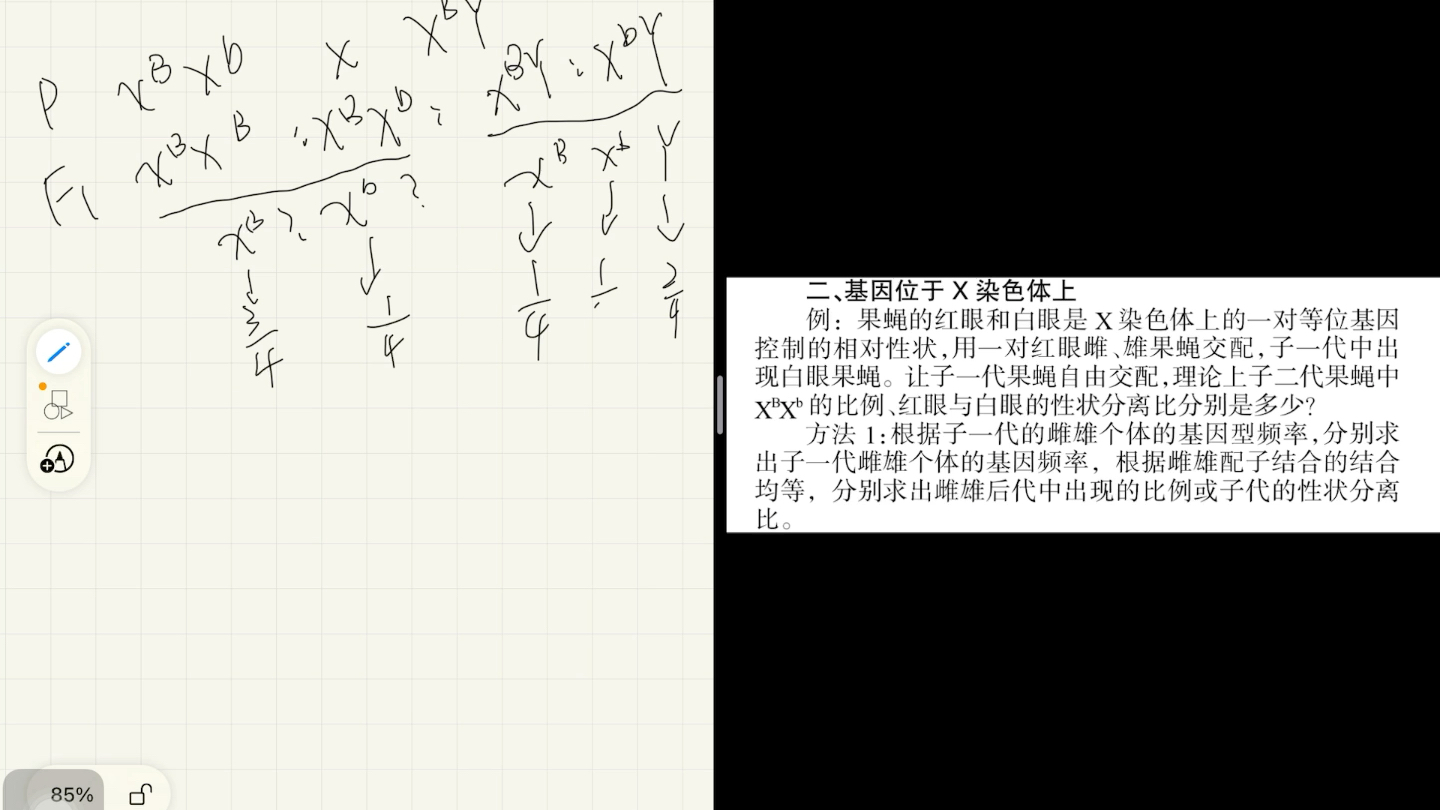 P X^B X^b X X^B Y
F1 X^B X^B : X^B X^b : X^B Y : X^b Y
X^B ? X^b ? X^B X^b Y
3/4 1/4 1/4 1/ 2/4
85%
二、基因位于 X 染色体上
例：果蝇的红眼和白眼是 X 染色体上的一对等位基因
控制的相对性状,用一对红眼雌、雄果蝇交配,子一代中出
现白眼果蝇。让子一代果蝇自由交配,理论上子二代果蝇中
X^BX^b 的比例、红眼与白眼的性状分离比分别是多少?
方法 1:根据子一代的雌雄个体的基因型频率,分别求
出子一代雌雄个体的基因频率，根据雌雄配子结合的结合
均等，分别求出雌雄后代中出现的比例或子代的性状分离
比。